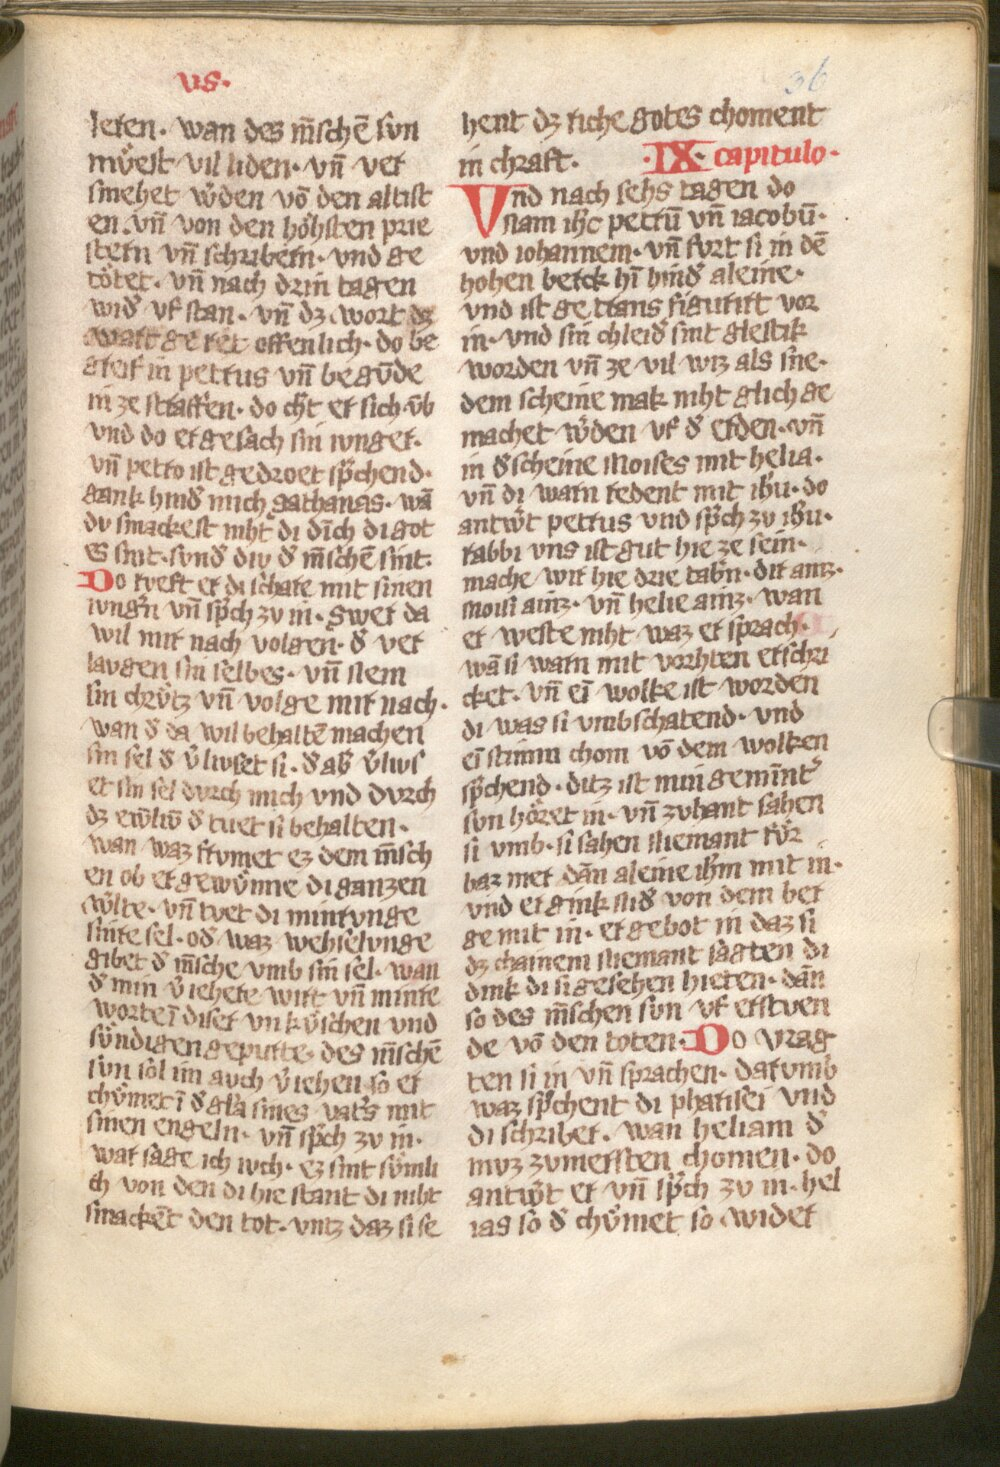 vs.
36
leren. wan des m̄schē svn
mv̊est vil liden. vn̄ ver
smehet w̓den vō den altist
en. vn̄ von den hóhsten prie
stern vn̄ schribern. vnd ge
tôtet. vn̄ nach drin tagen
wid̓ vf stan. vn̄ dz wort dz
wart ge ret offenlich. do be
greif in petrus vn̄ begv̄de
in ze straffen. do chīt er sich v̄b
vnd do er gesach sin ivnger.
vn̄ petro ist gedroet sp̓chend.
gank hind̓ mich sathanas. wā
dv smackest niht di dīch di got
es sint. svnd̓ div d̓ m̄schē sint.
Do rveft er di schare mit sinen
ivng̓n vn̄ sp̓ch zv in. swer da
wil mir nach volgen. d̓ ver
lavgen sin selbes. vn̄ nem
sin chrv̂tz vn̄ volge mir nach.
wan d̓ da wil behaltē machen
sin sel d̓ v̓livset si. d̓ ab̓ v̓livs
er sin sel dvrch mich vnd dvrch
dz ew̄liv̄ d̓ tvet si behalten.
wan waz frvmet ez dem m̄sch
en ob er gewv̂nne di ganzen
w̓lte. vn̄ tvet di minrvnge
sinre sel. od̓ waz wehselvnge
gibet d̓ m̄sche vmb sin sel. wan
d̓ min v̓iehere wirt vn̄ minre
worte ī diser vnkv̂schen vnd
sv̂ndigen gepurte. des m̄schē
svn sol im auch v̓iehen so er
chv̂met ī d̓ gl̓a sines vat̓s mit
sinen engeln. vn̄ sp̓ch zv in.
war sage ich ivch. ez sint sv̂mli
ch von den di hie stant di niht
smackēt den tot. vntz daz si se
hent dz riche gotes choment
in chraft. .IX. capitulo.
Vnd nach sehs tagen do
nam ih̄c petrū vn̄ iacobū.
vnd iohannem. vn̄ fvrt si in dē
hohen berck hī hind̓ aleine.
vnd ist ge trans figurirt vor
in. vnd sin chleid̓ sint glestik
worden vn̄ ze vil wiz als sne.
dem scheine mak niht glich ge
machet w̓den vf d̓ erden. vn̄
in d̓ scheine Moises mit helia.
vn̄ di warn redent mit ihū. do
antw̓t petrus vnd sp̓ch zv ihū.
rabbi vns ist gut hie ze sein.
mache wir hie drie tab̓n. dir ainz.
moisi ainz. vn̄ helie ainz. wan
er weste niht waz er sprach.
wā si warn mit vorhten erschri
cket. vn̄ eī wolke ist worden
di was si vmbschatend. vnd
eī stimm chom vō dem wolken
sp̓chend. ditz ist min gemīnt̓
svn hôret in. vn̄ zvhant sahen
si vmb. si sahen niemant fv̂r
baz mer dān aleine ihm̄ mit in.
vnd er gink nid̓ von dem ber
ge mit in. er gebot in daz si
dz chainem niemant sagten di
dink di si gesehen hieten. dān
so des m̄schen svn vf erstven
de vō den toten. Do vrag
ten si in vn̄ sprachen. darumb
waz sp̓chent di pharisei vnd
di schriber. wan heliam d̓
mvz zvmersten chomen. do
antw̓t er vn̄ sp̓ch zv in. hel
ias so d̓ chv̂met so wider